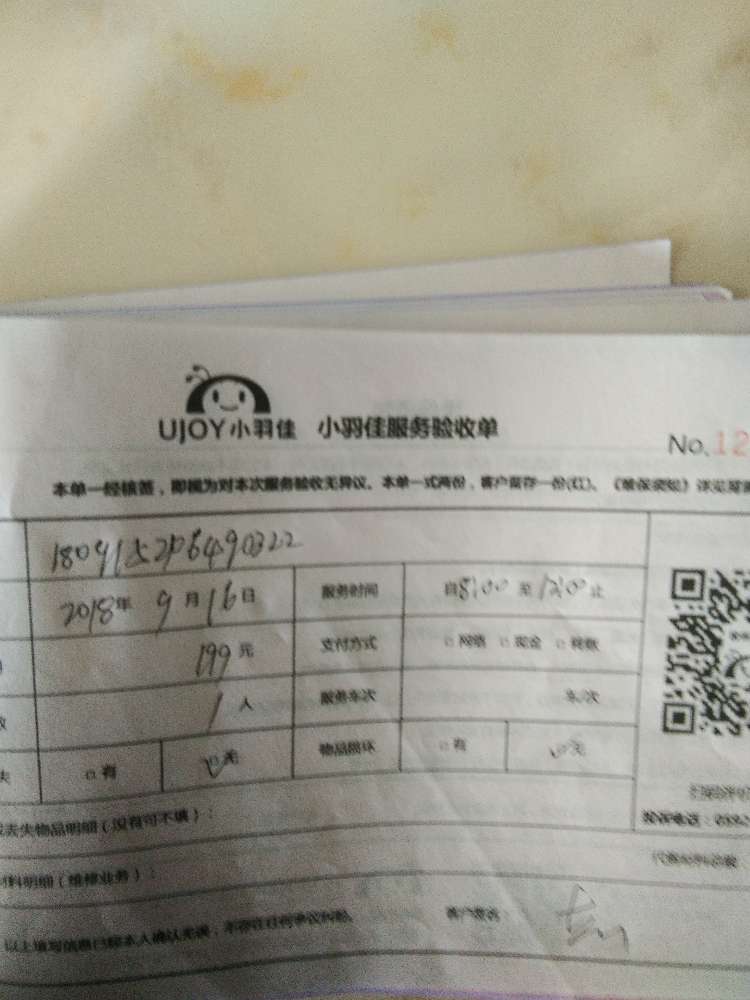 UJOY小羽佳 小羽佳服务验收单
No.12
本单一经核签，即视为对本次服务验收无异议。本单一式两份，客户留存一份(红)。《维保须知》详见背
2018年9月16日 服务时间 自8:00至12:00止
199元 支付方式 □网络 □现金 □转款
1人 服务车次 车次
失 □有 □无 物品损坏 □有 □无
丢失物品明细（没有可不填）：
料明细（维修业务）：
以上填写信息已经本人确认无误，不存在任何争议纠纷。 客户签名：